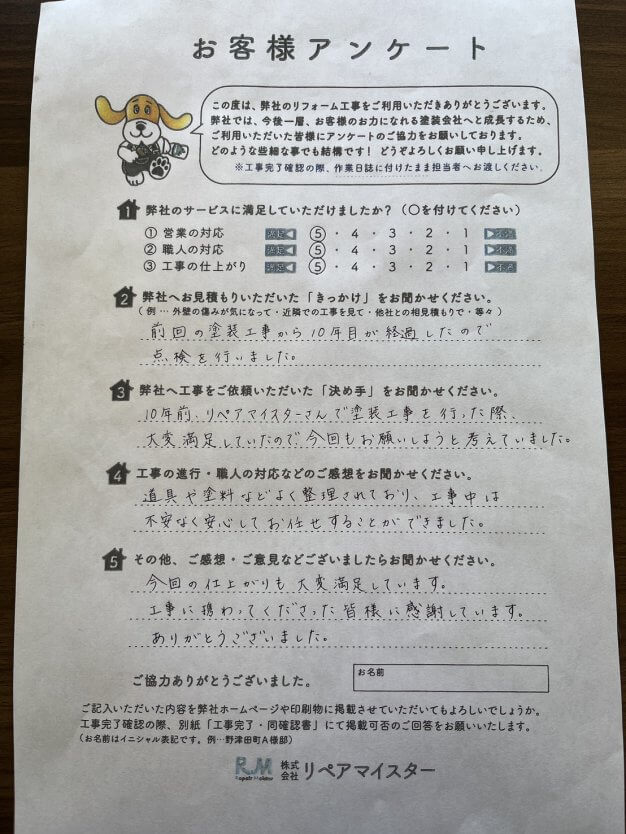 お客様アンケート
この度は、弊社のリフォーム工事をご利用いただきありがとうございます。
弊社では、今後一層、お客様のお力になれる塗装会社へと成長するため、
ご利用いただいた皆様にアンケートのご協力をお願いしております。
どのような些細な事でも結構です！ どうぞよろしくお願い申し上げます。
※工事完了確認の際、作業日誌に付けたまま担当者へお渡しください。
1 弊社のサービスに満足していただけましたか？（〇を付けてください）
① 営業の対応 満足 5・4・3・2・1 不満
② 職人の対応 満足 5・4・3・2・1 不満
③ 工事の仕上がり 満足 5・4・3・2・1 不満
2 弊社へお見積もりいただいた「きっかけ」をお聞かせください。
（例…外壁の傷みが気になって・近隣での工事を見て・他社との相見積もりで・等々）
前回の塗装工事から10年目が経過したので
点検を行いました。
3 弊社へ工事をご依頼いただいた「決め手」をお聞かせください。
10年前、リペアマイスターさんで塗装工事を行った際、
大変満足していたので今回もお願いしようと考えていました。
4 工事の進行・職人の対応などのご感想をお聞かせください。
道具や塗料などよく整理されており、工事中は
不安なく安心してお任せすることができました。
5 その他、ご感想・ご意見などございましたらお聞かせください。
今回の仕上がりも大変満足しています。
工事に携わってくださった皆様に感謝しています。
ありがとうございました。
ご協力ありがとうございました。
お名前
ご記入いただいた内容を弊社ホームページや印刷物に掲載させていただいてもよろしいでしょうか。
工事完了確認の際、別紙「工事完了・同確認書」にて掲載可否のご回答をお願いいたします。
（お名前はイニシャル表記です。例…野津田町A様邸）
RM Repair Meister 株式会社 リペアマイスター